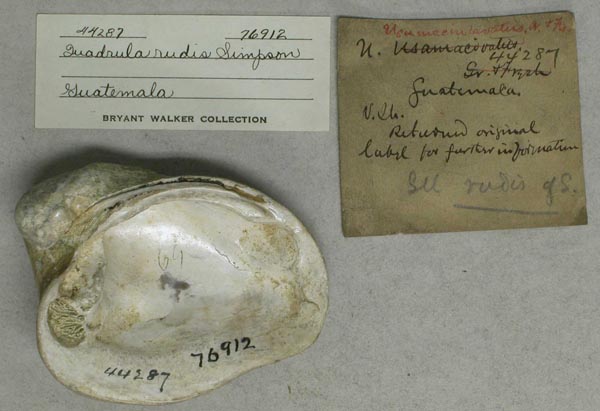 44287 76912
Quadrula rudis Simpson
Guatemala
BRYANT WALKER COLLECTION
U.
44287
Guatemala.
V. Sh.
Returned original
label for further information
rudis
64
76912
44287